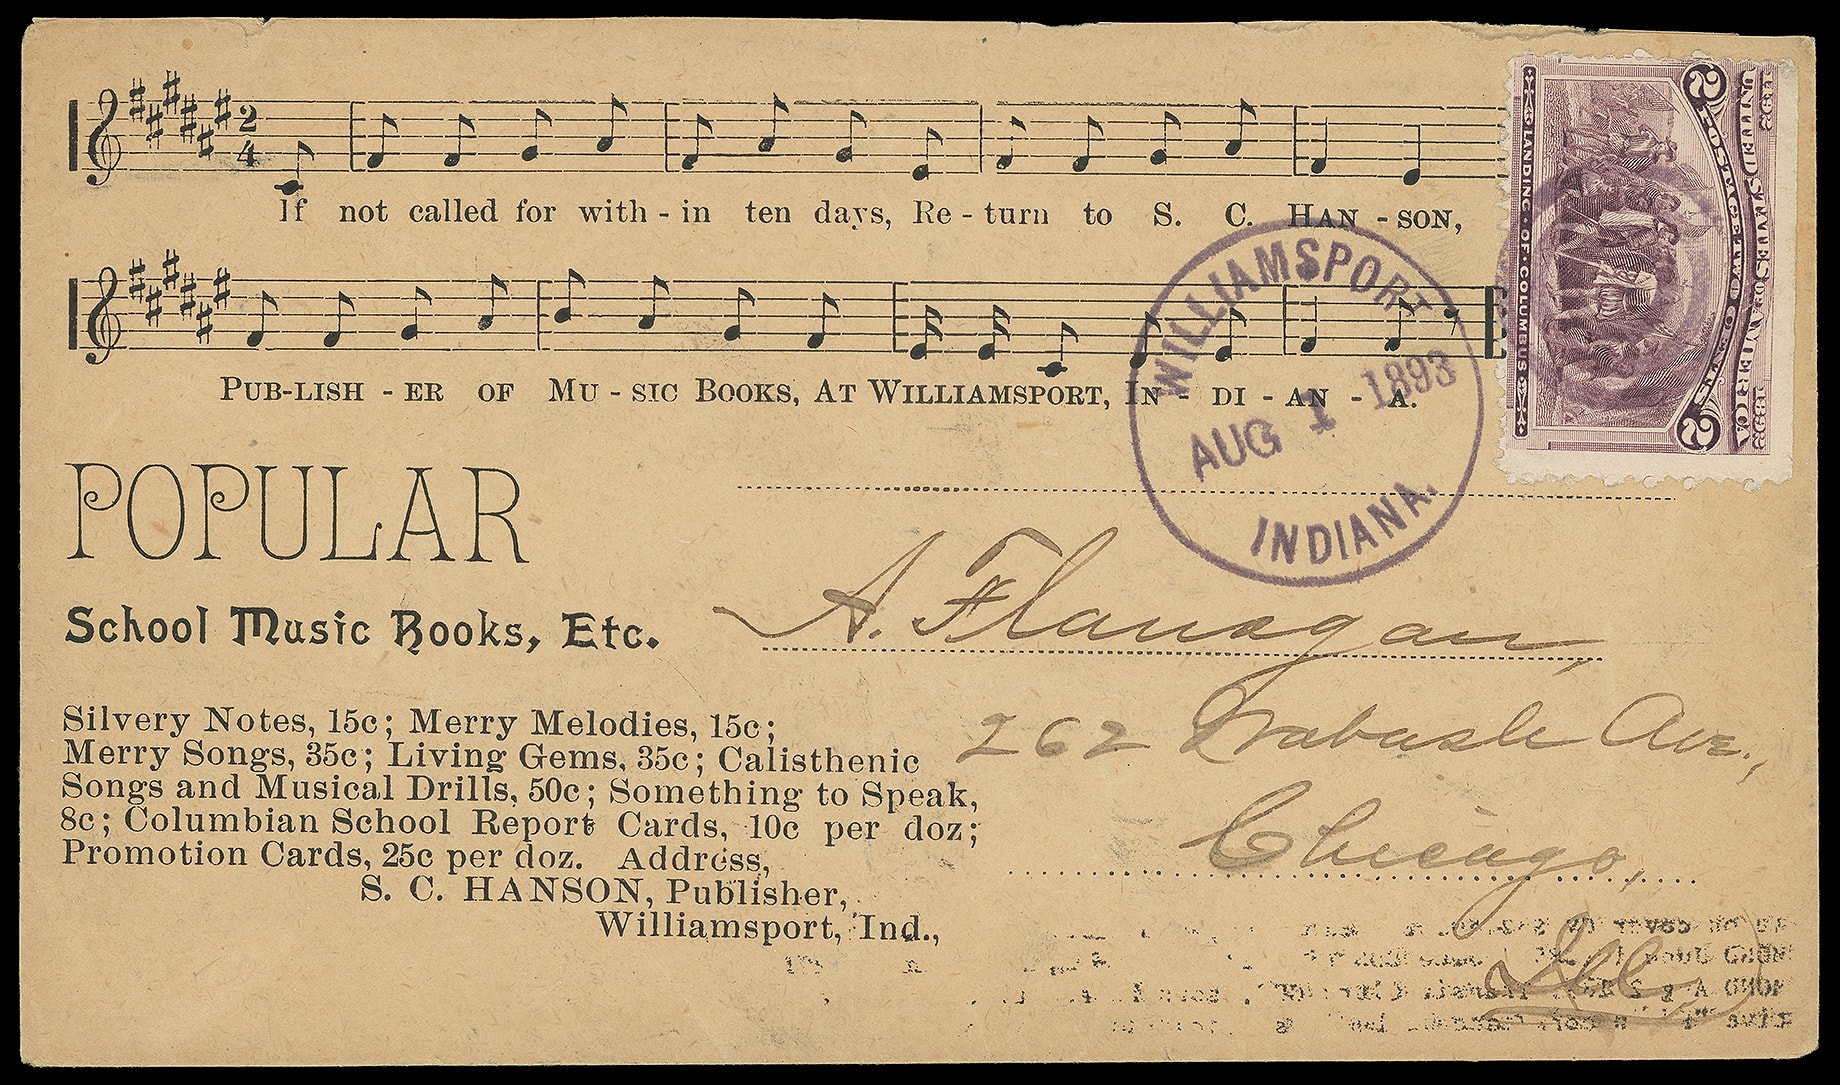 2
4
If not called for with - in ten days, Re - turn to S. C. HAN - SON,
PUB-LISH - ER OF MU - SIC BOOKS, AT WILLIAMSPORT, IN - DI - AN - A.
1492 UNITED STATES OF AMERICA 1892
2 POSTAGE TWO CENTS 2
LANDING · OF · COLUMBUS
WILLIAMSPORT
AUG 1 1893
INDIANA.
POPULAR
School Music Books, Etc.
Silvery Notes, 15c; Merry Melodies, 15c;
Merry Songs, 35c; Living Gems, 35c; Calisthenic
Songs and Musical Drills, 50c; Something to Speak,
8c; Columbian School Report Cards, 10c per doz;
Promotion Cards, 25c per doz. Address,
S. C. HANSON, Publisher,
Williamsport, Ind.,
A. Flanagan,
262 Wabash Ave.,
Chicago,
Ills.